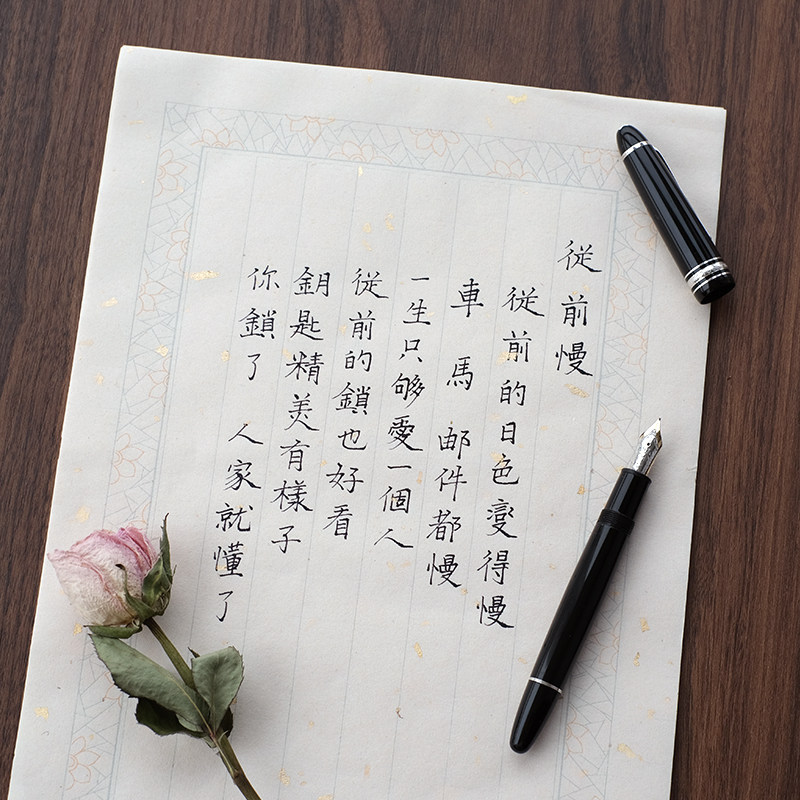 從前慢
從前的日色變得慢
車 馬 邮件都慢
一生只够愛一個人
從前的鎖也好看
鑰匙精美有樣子
你鎖了 人家就懂了